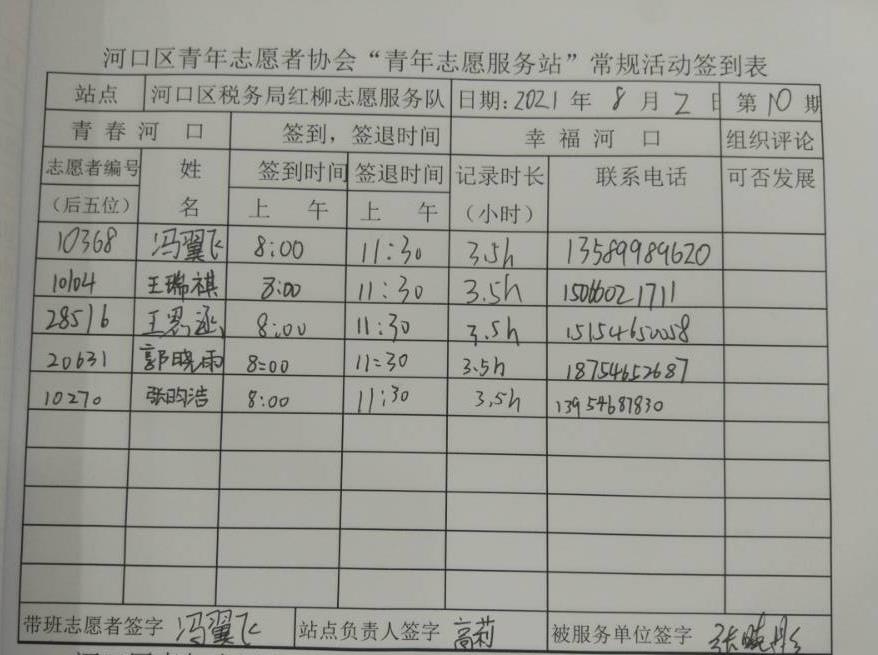 河口区青年志愿者协会“青年志愿服务站”常规活动签到表
站点 河口区税务局红柳志愿服务队 日期:2021 年 8 月 2 日 第 10 期
青春河 口 签到，签退时间 幸 福 河 口 组织评论
志愿者编号 姓 签到时间 签退时间 记录时长 联系电话 可否发展
（后五位） 名 上 午 上 午 （小时）
10368 冯翼飞 8:00 11:30 3.5h 13589989620
10104 王瑞祺 8:00 11:30 3.5h 15066021711
28516 王 8:00 11:30 3.5h 15154650058
20631 郭晓雨 8:00 11:30 3.5h 18754652687
10270 张昀浩 8:00 11:30 3.5h 13954687830
带班志愿者签字 冯翼飞 站点负责人签字 高莉 被服务单位签字 张晓